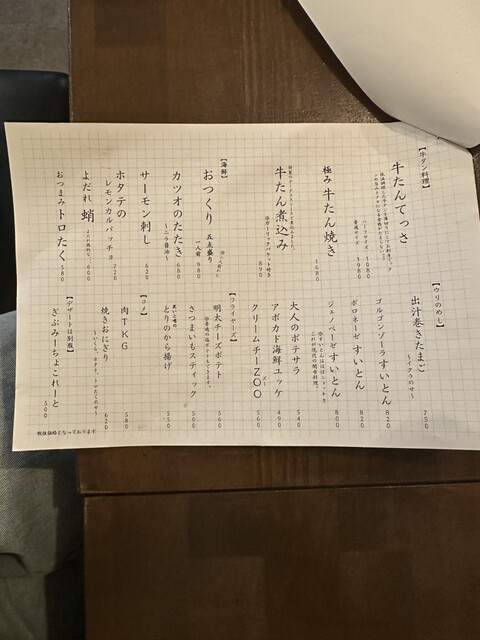 【牛タン料理】
牛たんてっさ
ハーフサイズ 1080
普通サイズ 1980
極み 牛たん焼き
1680
牛たん煮込み
※ガーリックバケット付き
890
【海鮮】
おつくり 五点盛り
一人前 980
カツオのたたき
〜ニラ醤油〜 680
サーモン刺し
620
ホタテの
レモンカルパッチョ
720
よだれ 蛸
600
おつまみ トロたく
580
【ウリのめし】
出汁巻きたまご
〜イクラのせ〜
750
ゴルゴンゾーラ すいとん
820
ボロネーゼ すいとん
820
ジェノベーゼ すいとん
800
大人のポテサラ
540
アボカド海鮮ユッケ
490
クリームチーZOO
560
【フライヤーズ】
明太チーズポテト
560
さつまいもスティック
500
とりのから揚げ
【コメ】
肉TKG
580
焼きおにぎり
620
【デザートは別腹】
ぎぶみーちょこれーと
500
税抜価格となっております